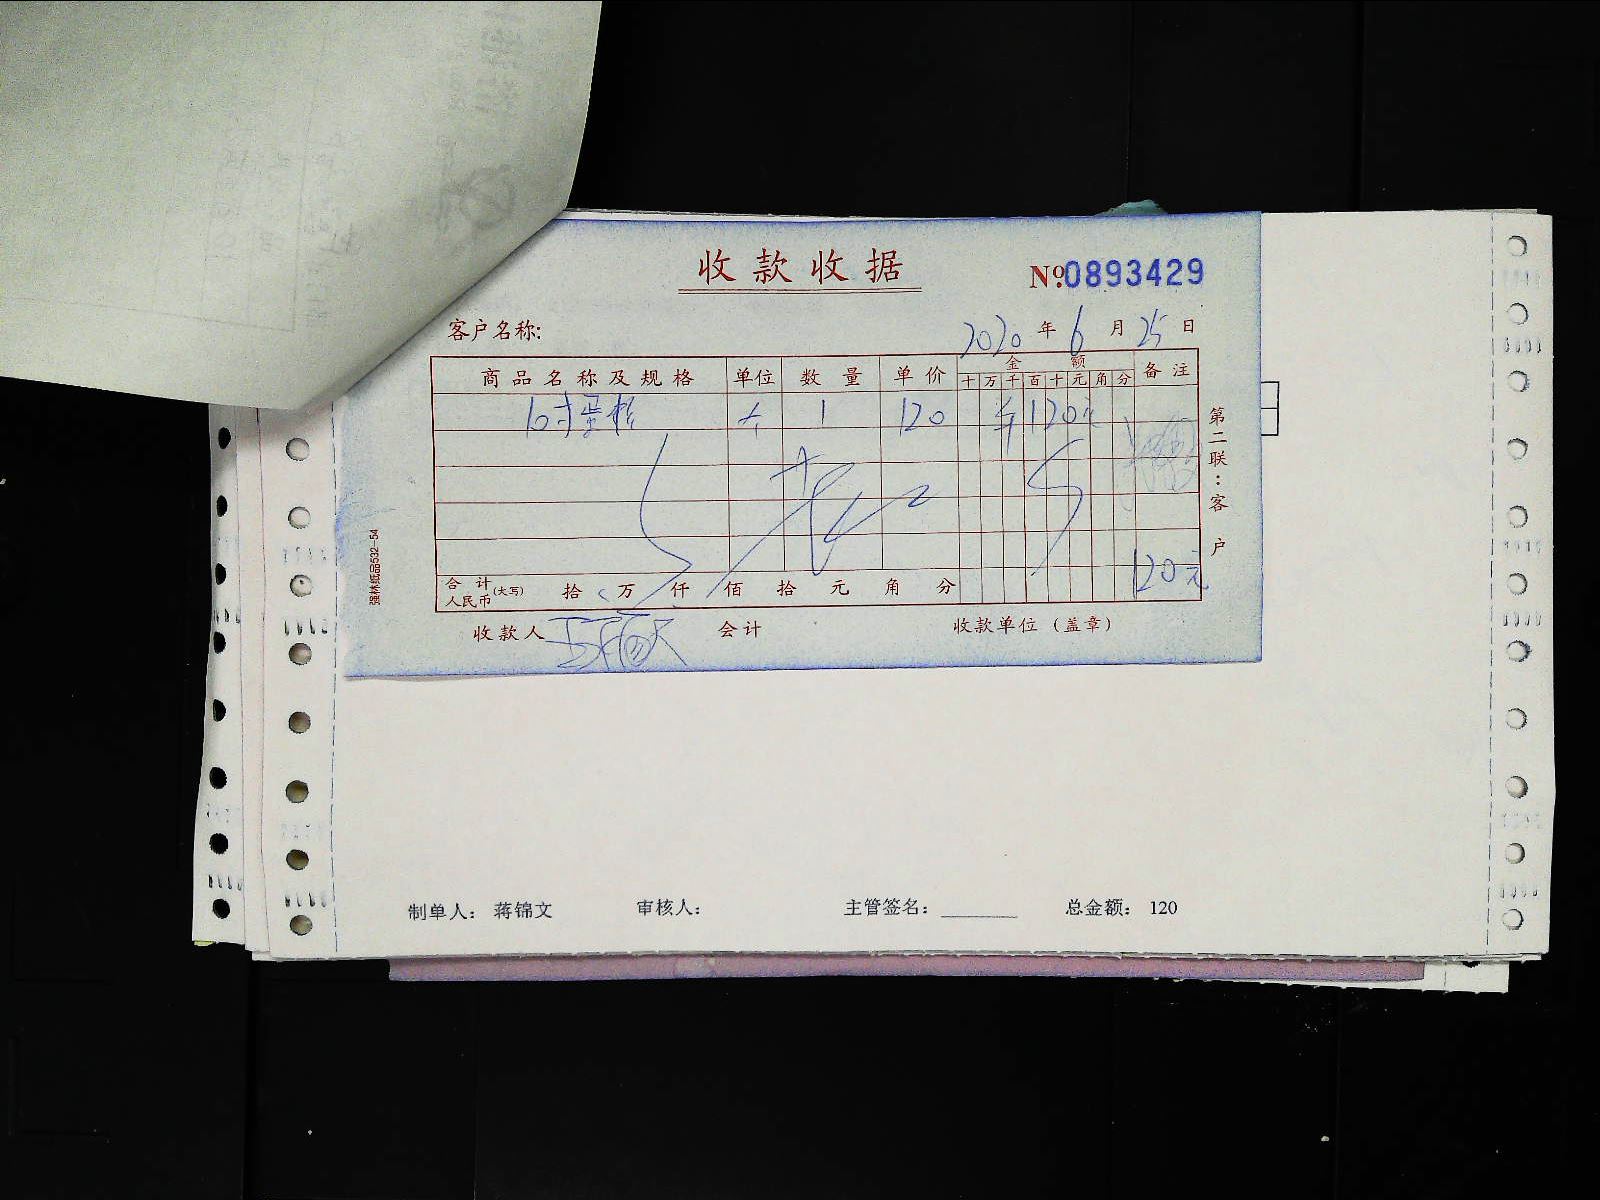 收款收据
№0893429
客户名称:
2020年6月25日
商品名称及规格 单位 数量 单价 金额 备注
十万千百十元角分
10寸蛋糕 个 1 120 120元
120元
合计人民币(大写) 拾 万 仟 佰 拾 元 角 分
收款人 会计 收款单位(盖章)
第二联:客户
强林纸品532-54
制单人: 蒋锦文 审核人: 主管签名: 总金额: 120